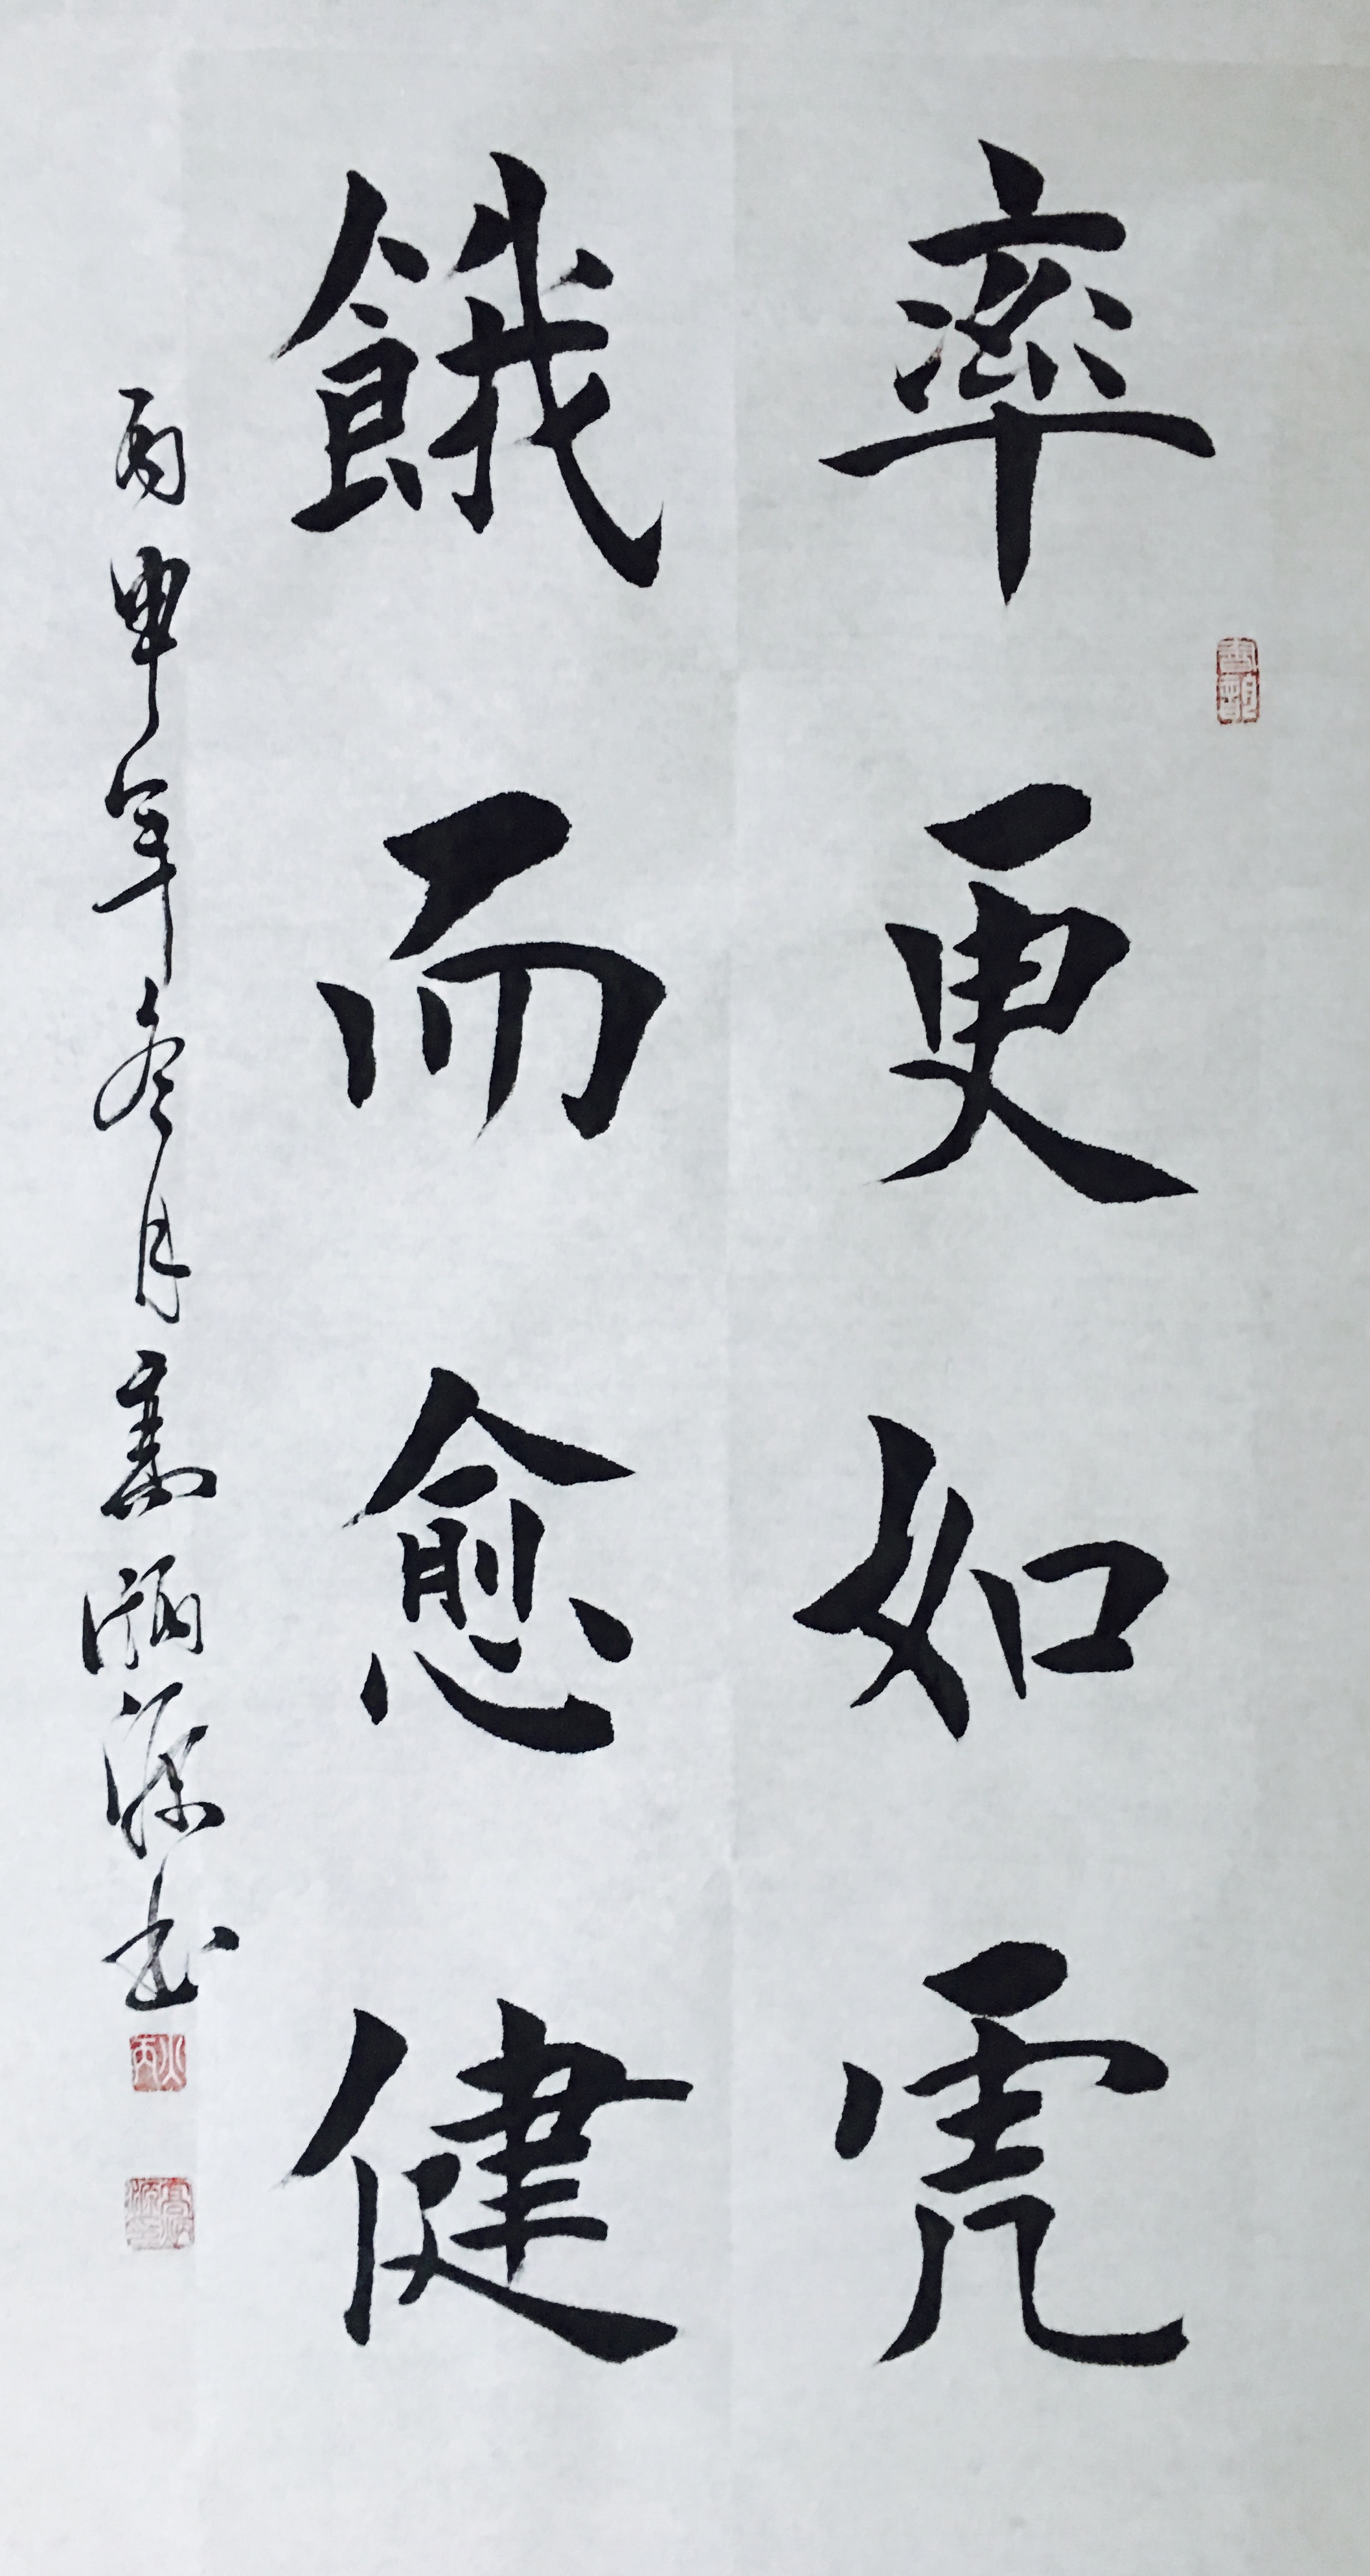 率更如虎
餓而愈健
丙申年冬月寫涵源书